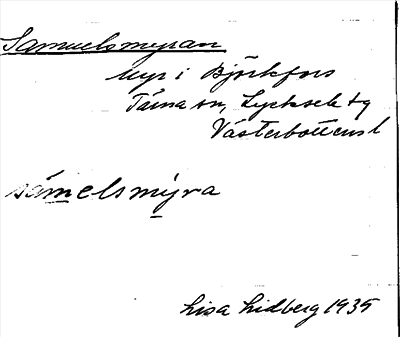 Samuelsmyran
Myr i Björkfors
Tärna sn, Lycksele tg
Västerbottens l
sámelsmýra
Lisa Lidberg 1935